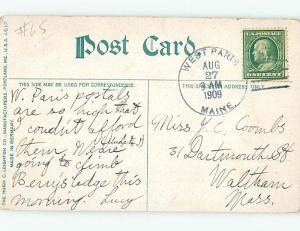 #65
Post Card
THIS SIDE MAY BE USED FOR CORRESPONDENCE.
THIS SIDE IS FOR THE ADDRESS.
WEST PARIS
AUG
27
AM
1909
MAINE.
U.S. POSTAGE
ONE CENT
THE HUGH C. LEIGHTON CO., MANUFACTURERS, PORTLAND, ME., U.S.A.
MADE IN GERMANY.
W. Paris postals
are so high that
I couldn't afford
them. We are
going to climb
Berry's ledge this
morning. Lucy
Miss J. C. Coombs
31 Dartmouth St
Waltham
Mass.